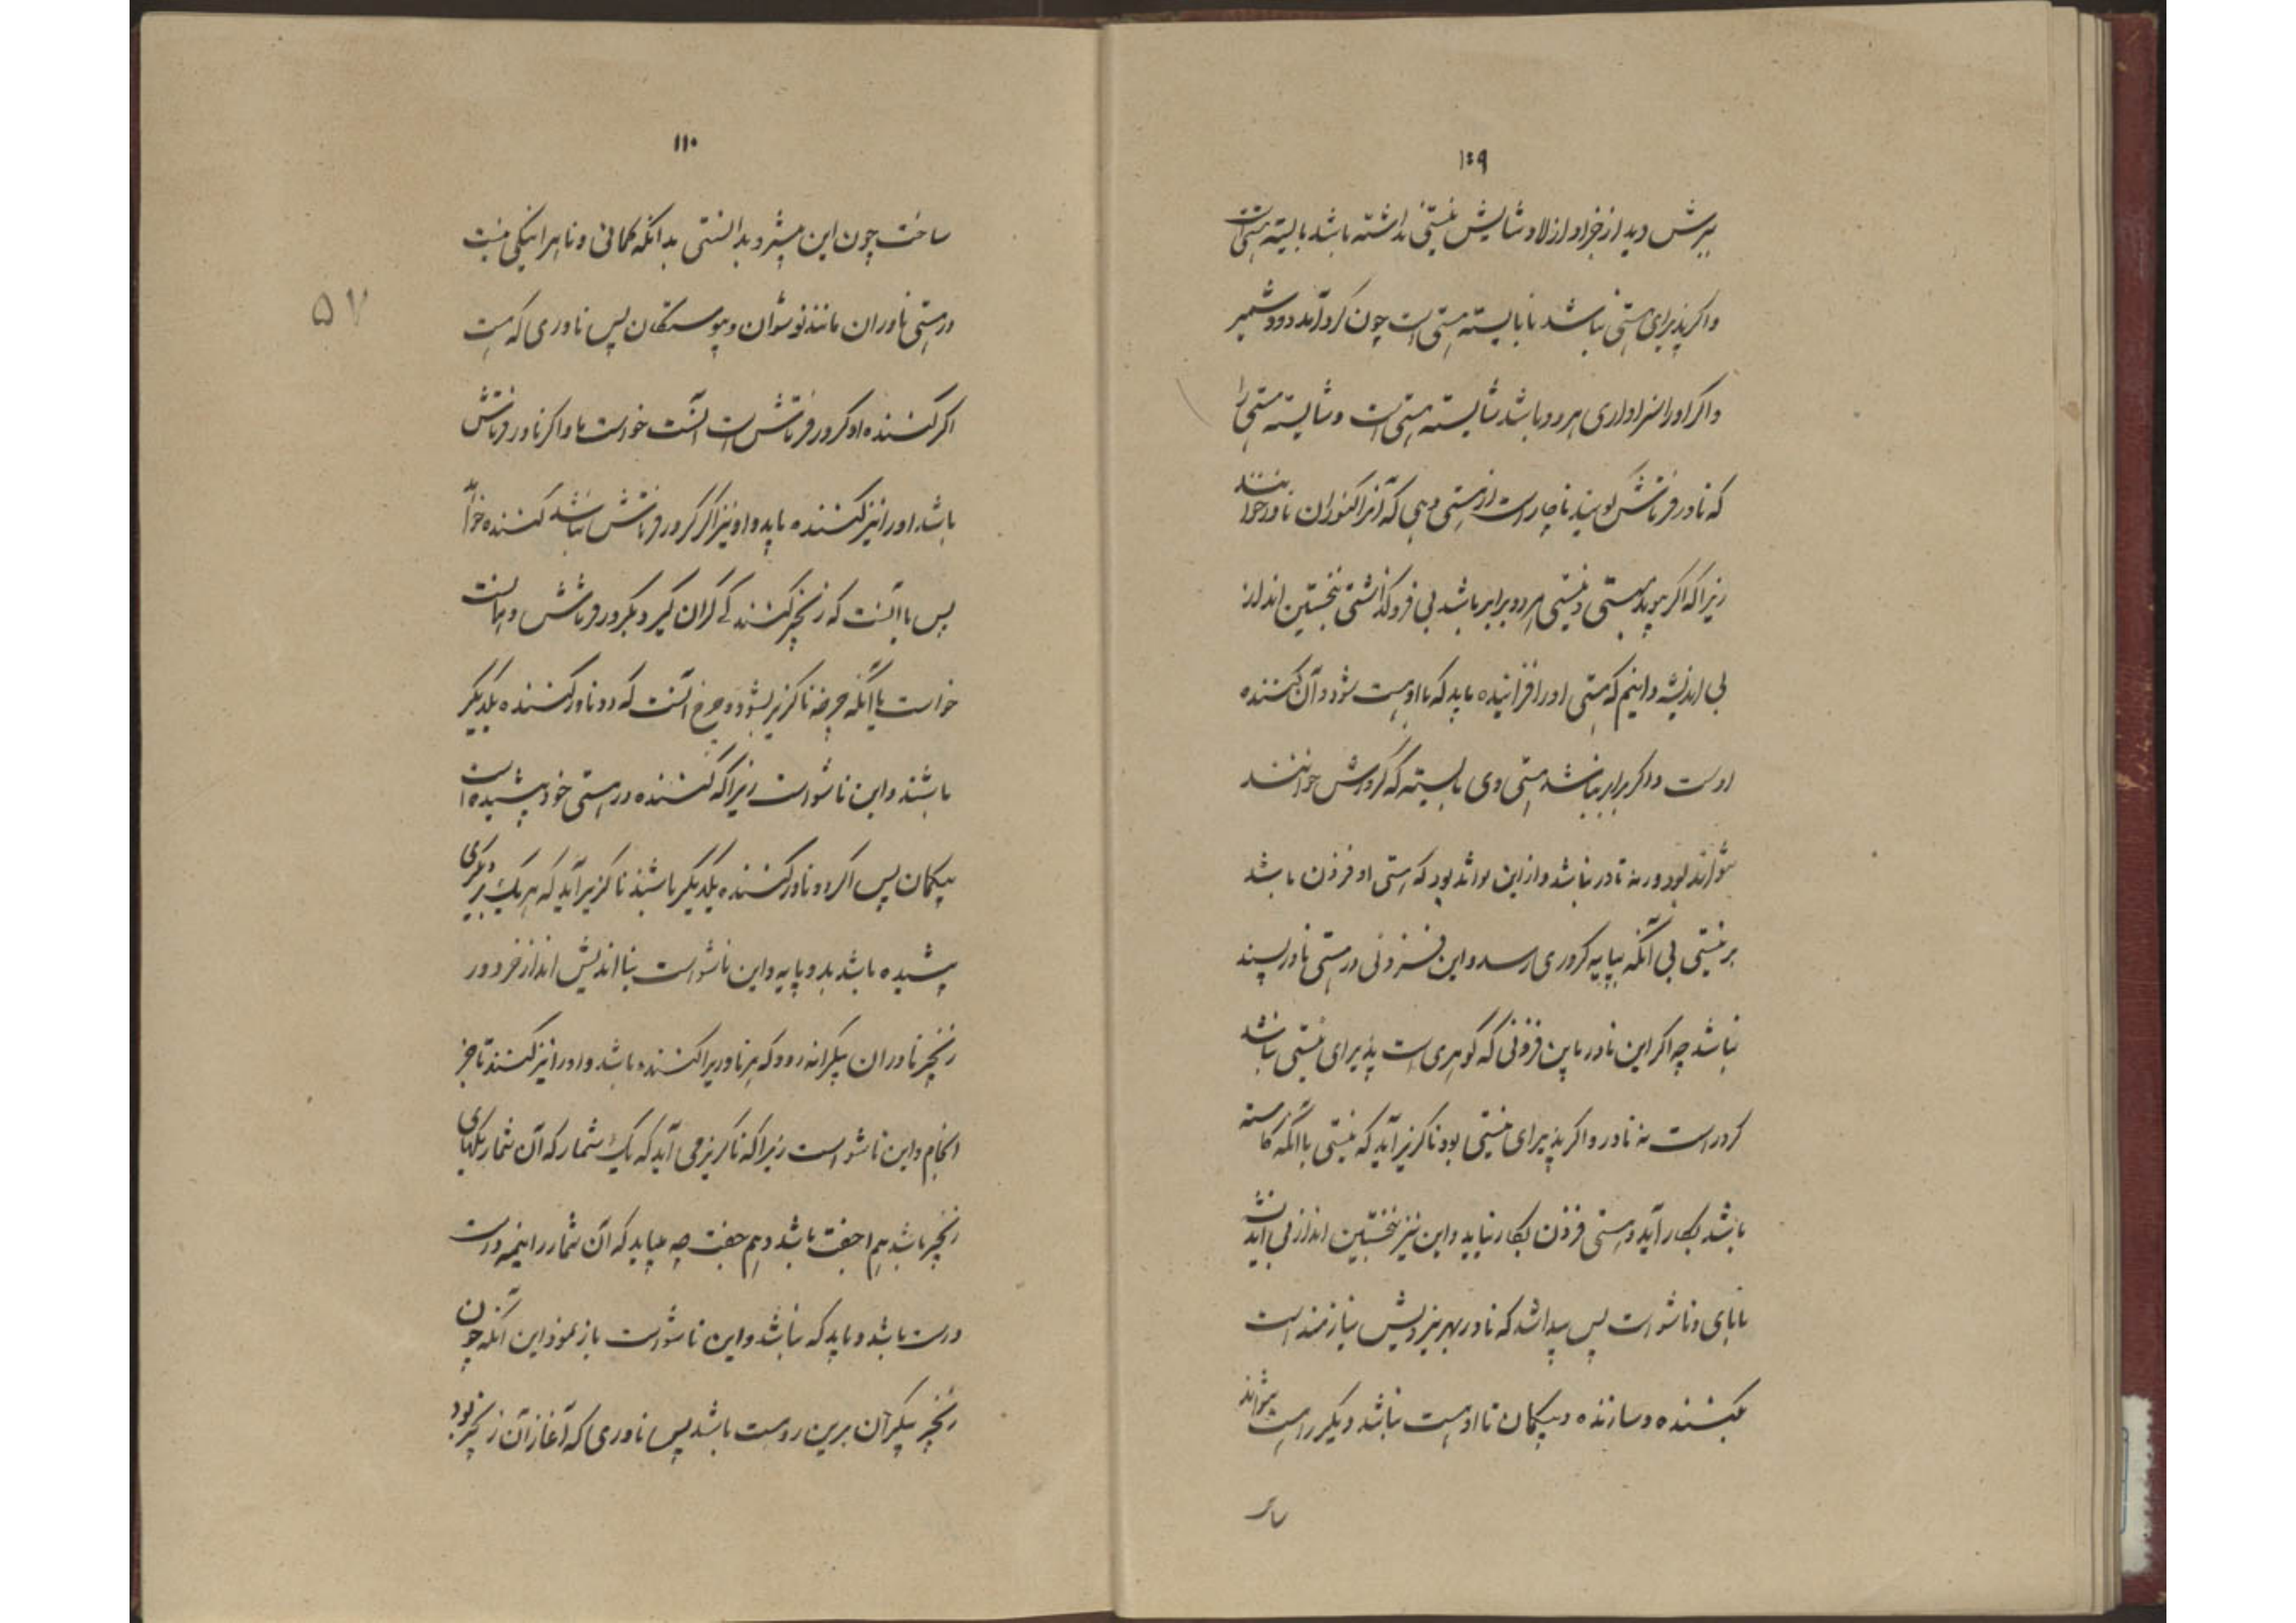 ۱۰۹
پرش دید از جز او از لاد و شایش نیستی نداشته باشد بایسته هستی است
واکر پذیرای هستی نباشد نابایسته هستی است چون کرد آمد دو شمیر
واکر اورا سزاواری هر دو باشد شایسته هستی است و شایسته هستی را
که ناور فرتاش کویند ناچار است از هستی دهی که آنرا کنوران ناور خوانند
زیرا که اکر هویدا هستی و نیستی هر دو برابر باشد بی فروکذاشتی نخستین انداز
بی اندیشه دانیم که هستی اورا فزاینده باید که با او هست شود و آن کننده
اوست و اکر برابر نباشد هستی وی بایسته که کرورش خوانند
تواند بود ورنه ناور نباشد و از این تواند بود که هستی او فزون باشد
بر نیستی بی آنکه بپایه کروری رسد و این فزونی در هستی ناور بسند
نباشد چه اکر این ناور باین فزونی که کوهری است پذیرای نیستی نباشد
کرور است نه ناور و اکر پذیرای نیستی بود ناکزیر آید که نیستی باآنکه کاسته
باشد بکار آید و هستی فزون بکار نیاید و این نیز نخستین انداز بی اندیشه
نابای و ناشو است پس پیدا شد که ناور بهر نیز ویش نیازمند است
بکننده و سازنده و بیکمان تا او هست نباشد دیکر را هست نتواند
سا
۱۱۰
ساخت چون این میشرد بدانستی بدانکه کمانی و ناهرانیکی نیست
در هستی ناوران مانند نوشوان و پیوستکان پس ناوری که هست
اکر کننده او کرور فرتاش است آنست خواست ما و اکر ناور فرتاش
باشد اورا نیز کننده باید و او نیز اکر کرور فرتاش نباشد کننده خواهد
پس یا آنست که زنجیر کنند کی کران کیرد بکرور فرتاش و همانست
خواست یا آنکه چرخه ناکزیر بشود و چرخ آنست که دو ناور کننده یکدیکر
باشند و این ناشو است زیرا که کننده در هستی خود پیشیده است
بیکمان پس اکر دو ناور کننده یکدیکر باشند ناکزیر آید که هر یک بر دیکری
پیشیده باشد بدو پایه و این ناشو است بنااندیش انداز خرد و ور
زنجیر ناوران بیکرانه رود که هر ناوریرا کننده باشد و اورا نیز کننده تا جز
انجام و این ناشو است زیرا که ناکریز می آید که یک شمار که آن شمار یکهای
زنجیر باشد هم اجفت باشد و هم جفت چه میباید که آن شمار را نیمه درست
درست باشد و باید که نباشد و این ناشو است باز نمود این آنکه چون
زنجیر بیکران برین رو هست باشد پس ناوری که آغاز آن زنجیر بود
۵۷